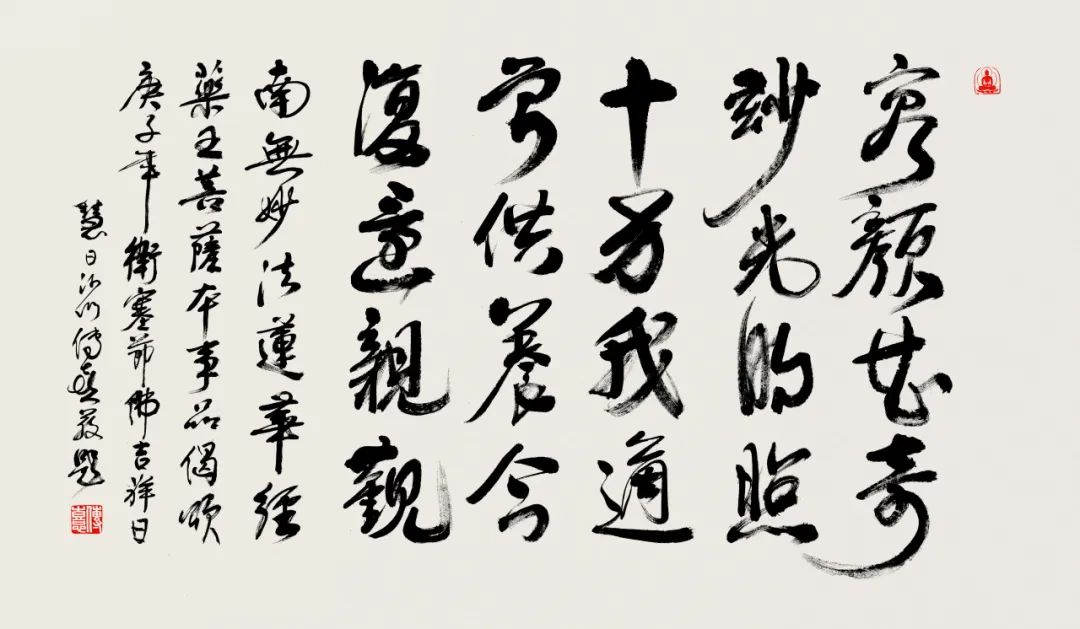 容顏甚奇
玅光明照
十方我適
曾供養今
復還親覲
南無妙法蓮華經
藥王菩薩本事品偈頌
庚子年衛塞節佛吉祥日
慧日沙門傳憙敬題
傳憙